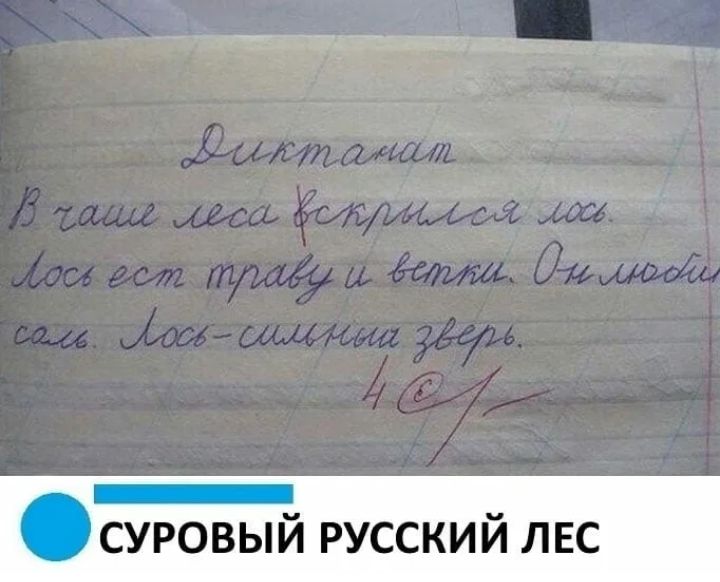 Диктанат
В чаше леса вскрылся лось.
Лось ест траву и ветки. Он любит
соль. Лось-сильный зверь.
4
СУРОВЫЙ РУССКИЙ ЛЕС